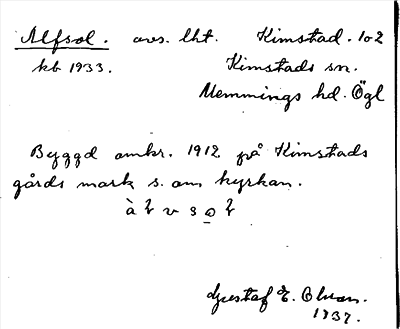 Alfsol. avs. lht. Kimstad. 1o2
kb 1933. Kimstads sn.
Memmings hd. Ögl
Byggd omkr. 1912 på Kimstads
gårds mark s. om kyrkan.
Gustaf E. Olson.
1937.